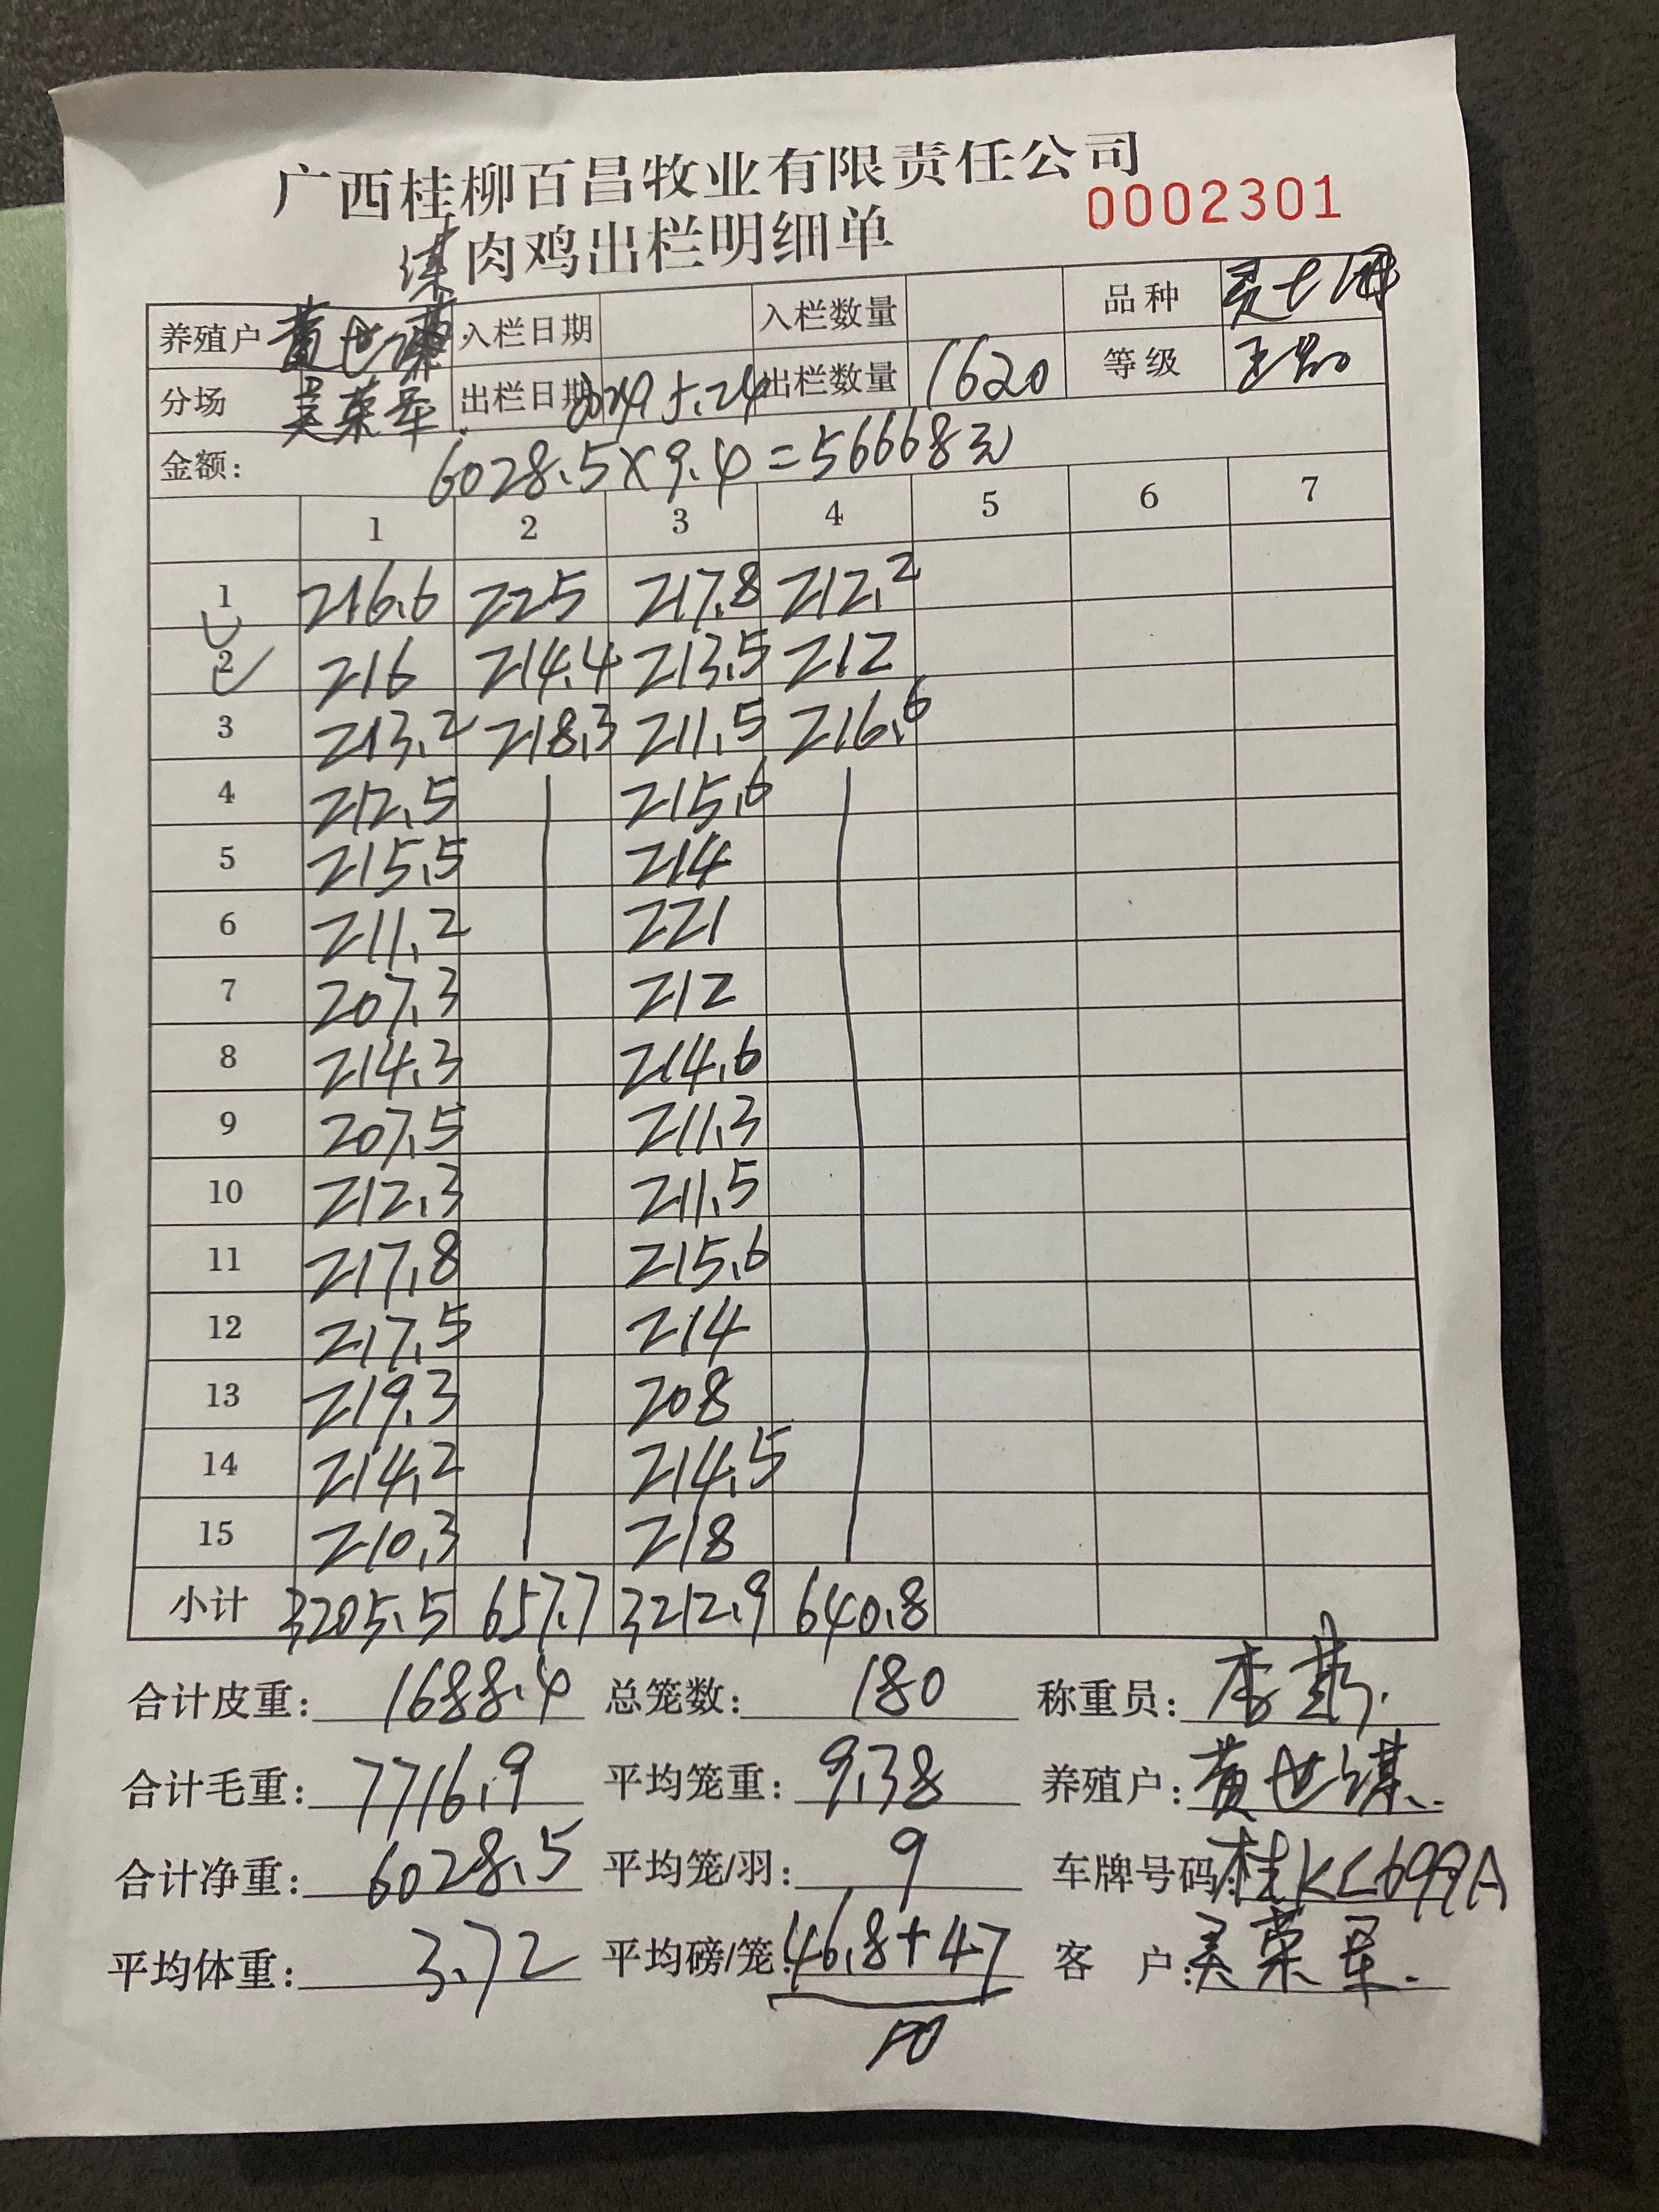 广西桂柳百昌牧业有限责任公司
0002301
肉鸡出栏明细单
谋
养殖户 黄世谋 入栏日期 入栏数量 品种
分场 吴荣军. 出栏日期 2024 5.24 出栏数量 1620 等级
金额: 6028.5×9.4=56668元
1 2 3 4 5 6 7
1 216.6 225 217.8 212.2
2 216 214.4 213.5 212
3 213.2 218.3 211.5 216.6
4 212.5 215.6
5 215.5 214
6 211.2 221
7 207.3 212
8 214.3 214.6
9 207.5 211.3
10 212.3 211.5
11 217.8 215.6
12 217.5 214
13 219.3 208
14 214.2 214.5
15 210.3 218
小计 3205.5 657.7 3212.9 640.8
合计皮重: 1688.4 总笼数: 180 称重员: 李
合计毛重: 7716.9 平均笼重: 9.38 养殖户: 黄世谋.
合计净重: 6028.5 平均笼/羽: 9 车牌号码: 桂KC699A
平均体重: 3.72 平均磅/笼: 46.8+47 客 户: 吴荣军.